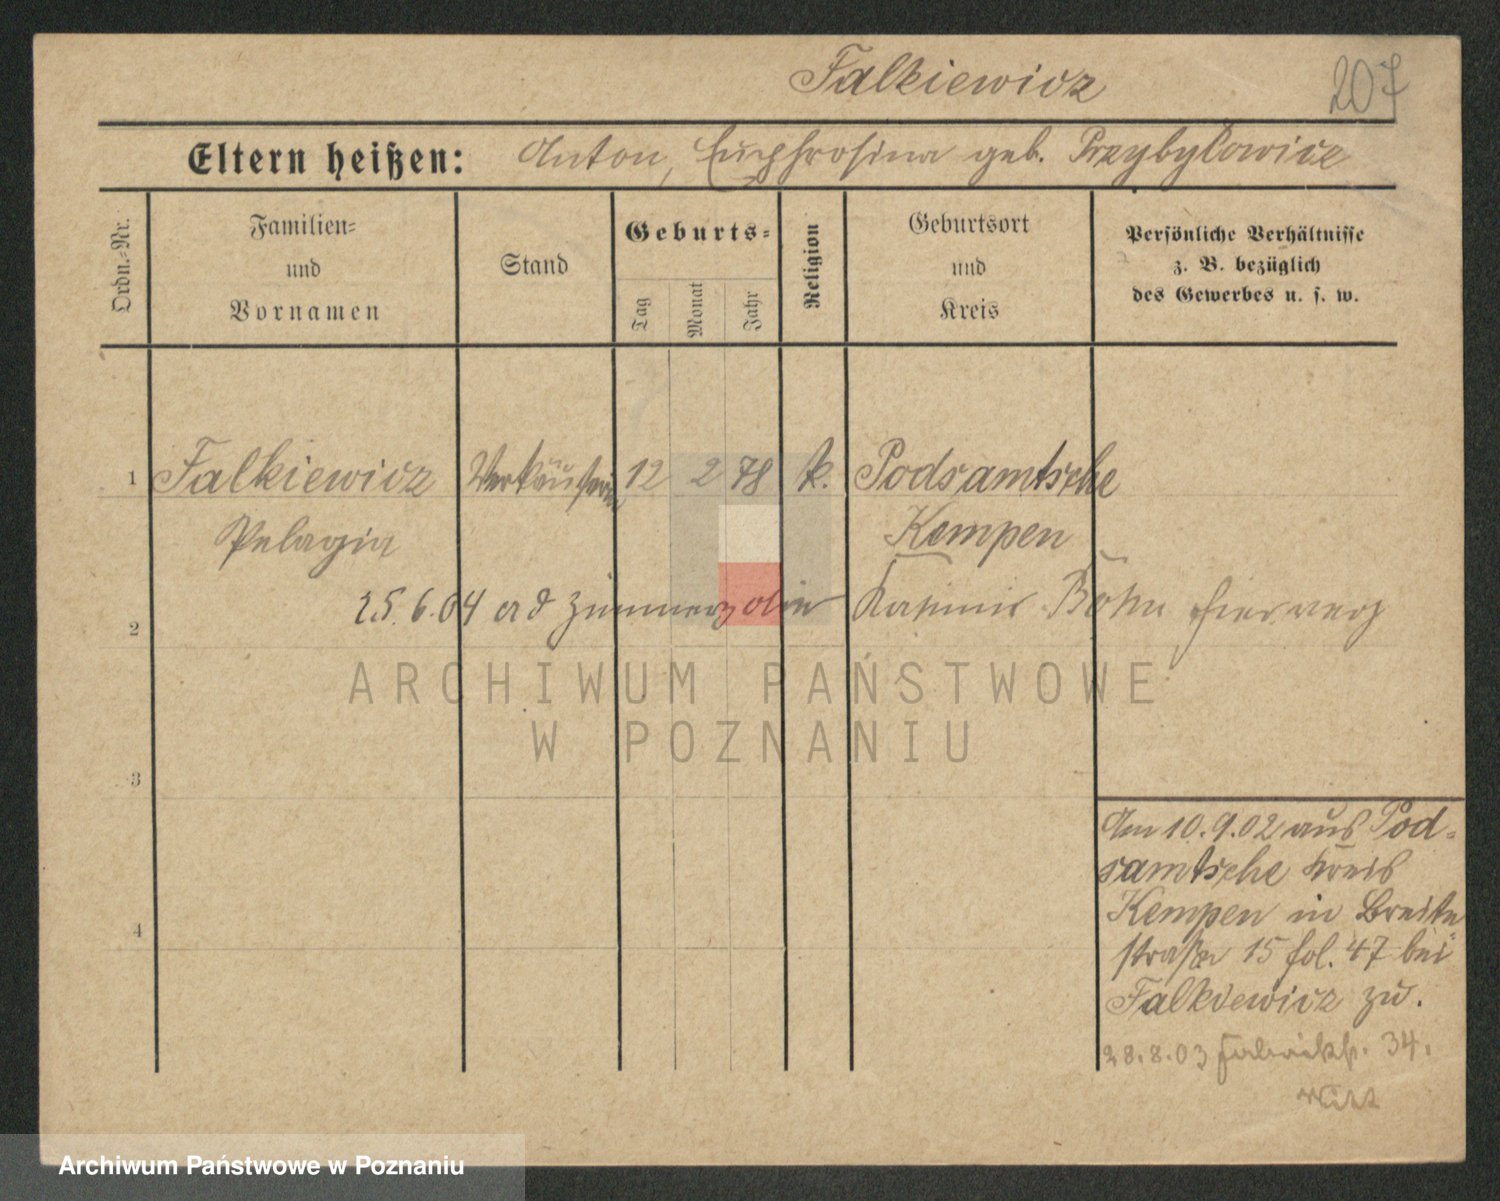 Falkiewicz
207
Eltern heißen: Anton, Euphrosina geb. Przybylowicz
Ordn.-Nr.
Familien-
und
Vornamen
Stand
Geburts-
Tag
Monat
Jahr
Religion
Geburtsort
und
Kreis
Persönliche Verhältnisse
z. B. bezüglich
des Gewerbes u. s. w.
1 Falkiewicz Verkäuferin 12 2 78 k. Podsamtsche
Pelagia Kempen
2 25.6.04 Kasimir Böhm
3
4
Am 10.9.02 aus Pod-
samtsche Kreis
Kempen in Breite
straße 15 fol. 47 bei
Falkiewicz zu.
28.8.03 Fabrikstr. 34.
ARCHIWUM PAŃSTWOWE
W POZNANIU
Archiwum Państwowe w Poznaniu